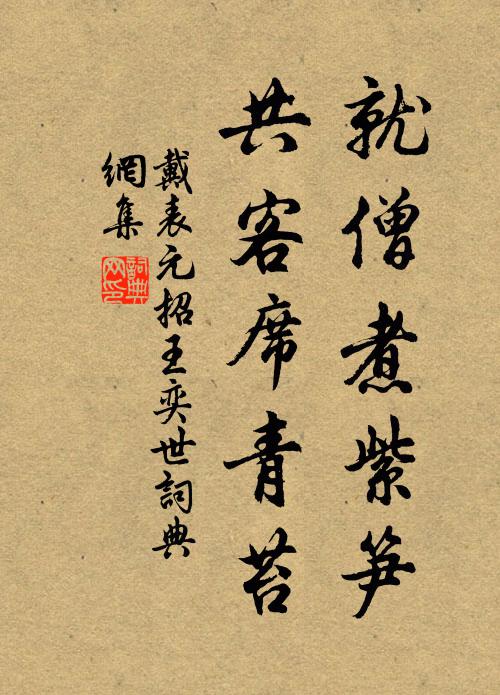 就僧煮紫笋
共客席青苔
戴表元招王奕世詞典
網集
詞典
网印